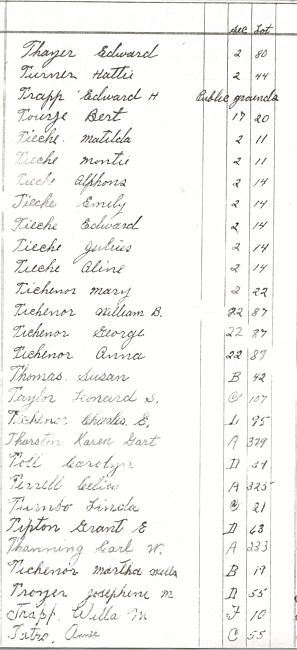 Sec Lot
Thayer Edward 2 80
Turner Hattie 2 44
Trapp Edward H Public grounds
Tourje Bert 17 20
Tieche Matilda 2 11
Tieche Montie 2 11
Tieche Alphons 2 14
Tieche Emily 2 14
Tieche Edward 2 14
Tieche Julius 2 14
Tieche Aline 2 14
Tichenor Mary 2 22
Tichenor William B. 22 87
Tichenor George 22 87
Tichenor Anna 22 87
Thomas. Susan B 42
Taylor Honard S. C 107
Tichenor Charles E, D 95
Thurston Karen Gart A 329
Toll Carolyn D
Terrell Celica A 325
Turnbo Linda C 21
Tipton Grant E D 63
Thanning Carl W. A 233
Tichenor Martha Mills B 19
Troyer Josephine M D 55
Trapp. Willa M F 10
Tatro. Annie C 55